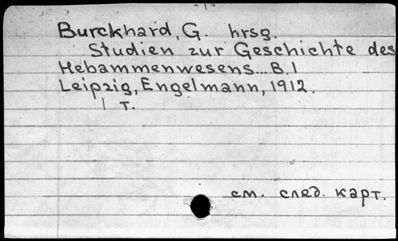 Burckhard, G. hrsg.
Studien zur Geschichte des
Hebammenwesens... B.1
Leipzig, Engelmann, 1912.
1 т.
см. след. карт.